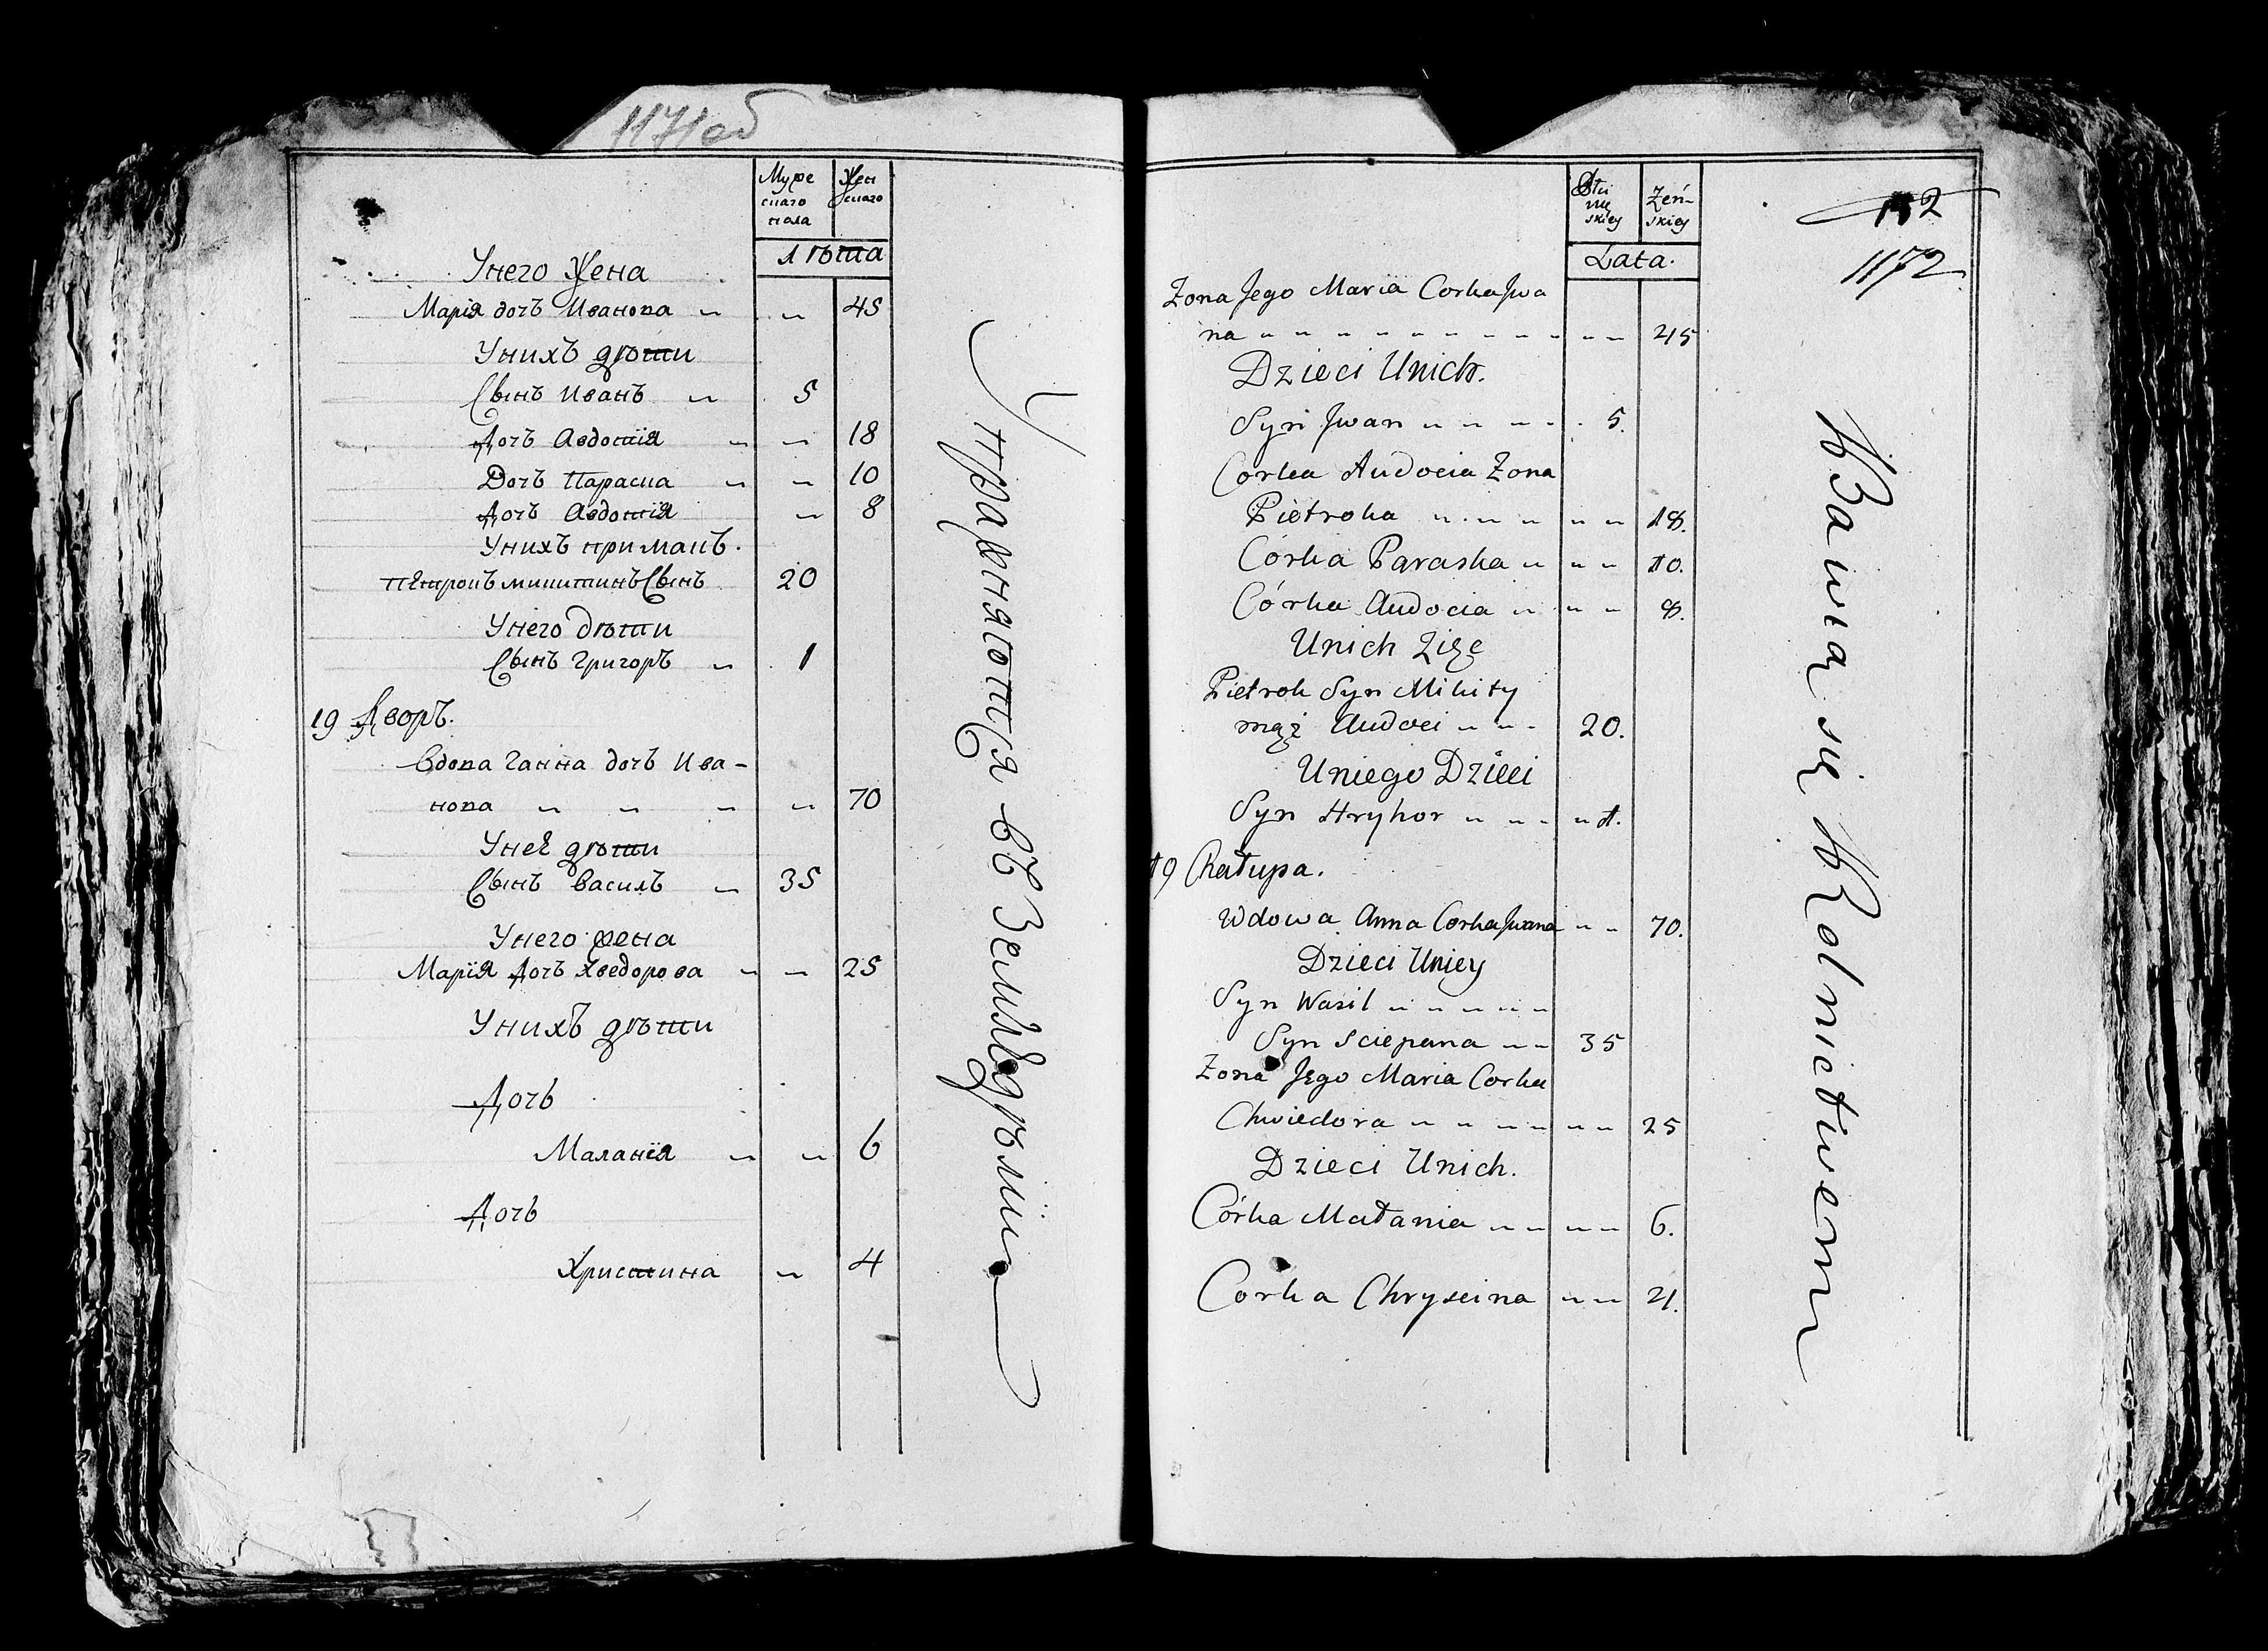 1171об
Муже
скаго
пола
Жен
скаго
Лѣта
Унего Жена
Марія дочъ Иванова 45
Унихъ дѣти
Сынъ Иванъ 5
Дочъ Авдотія 18
Дочъ Параска 10
Дочъ Авдотія 8
Унихъ примакъ.
Петрокъ микитинъ Сынъ 20
Унего дѣти
Сынъ Григоръ 1
19 Дворъ.
Вдова Ганна дочъ Ива-
нова 70
Унеѣ дѣти
Сынъ Василъ 35
Унего жена
Марія Дочъ Хведорова 25
Унихъ дѣти
Дочь
Маланія 6
Дочь
Христина 4
Упражняются въ Земледѣліи
Żeń-
skiey
Lata.
1172
Zona Jego Maria Corka Jwa
na 45
Dzieci Unich.
Syn Jwan 5.
Corka Audocia Zona
Pietroka 18.
Córka Paraska 10.
Córka Audocia 8.
Unich Zięc
Pietrok Syn Mikity
mąż Audoci 20.
Uniego Dzieci
Syn Hryhor 1.
19 Chałupa.
Wdowa Anna Corka Jwana 70.
Dzieci Uniey
Syn Wasil
Syn Sciepana 35
Zona Jego Maria Corka
Chwiedora 25
Dzieci Unich.
Córka Małania 6.
Corka Chryscina 4.
Bawią się Rolnictwem